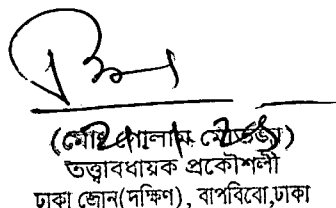 (মোঃ গোলাম মোর্তজা)
তত্ত্বাবধায়ক প্রকৌশলী
ঢাকা জোন(দক্ষিণ), বাপবিবো,ঢাকা